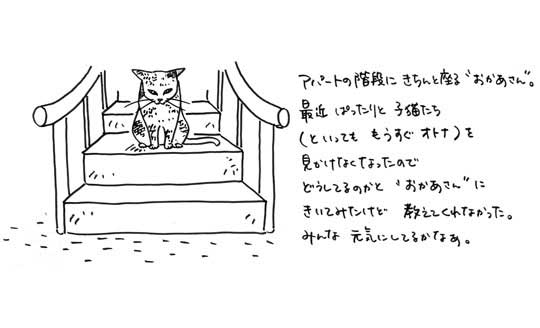 アパートの階段に きちんと座る“おかあさん”。
最近 ぱったりと 子猫たち
(といっても もうすぐ オトナ)を
見かけなくなったので
どうしてるのかと “おかあさん”に
きいてみたけど 教えてくれなかった。
みんな 元気にしてるかなぁ。